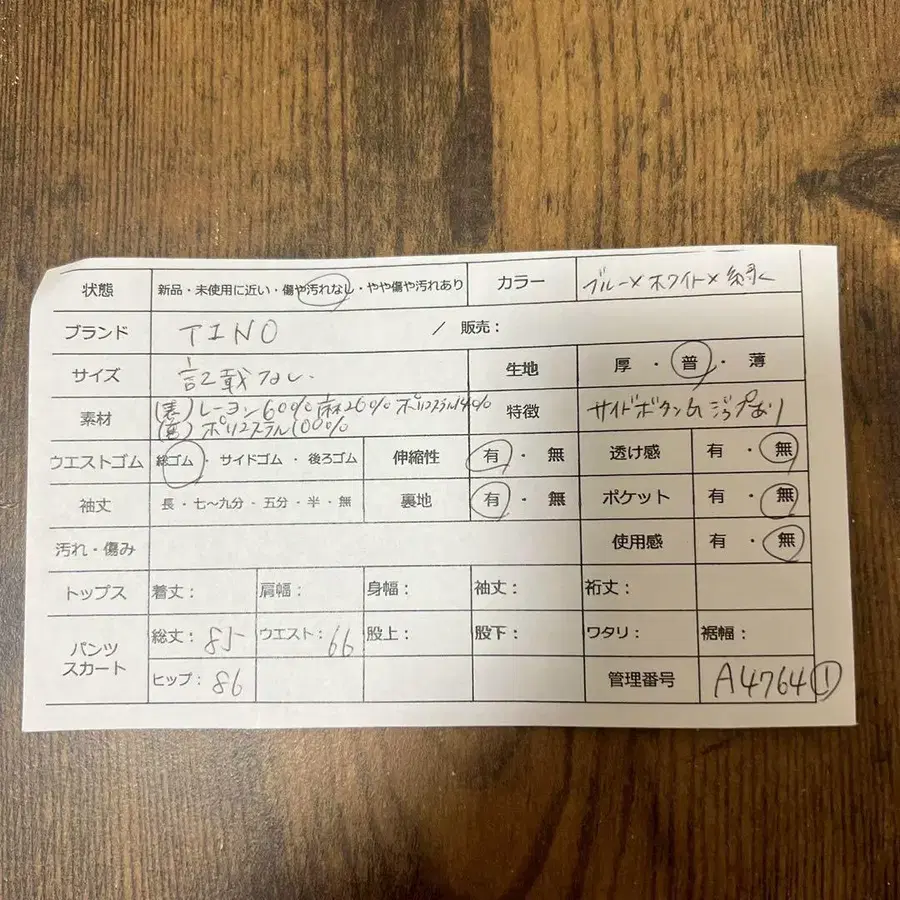 状態 新品・未使用に近い・傷や汚れなし・やや傷や汚れあり カラー ブルー×ホワイト×緑
ブランド TINO / 販売：
サイズ 記載なし. 生地 厚・普・薄
素材 (表)レーヨン60% 麻26% ポリエステル14% 特徴 サイドボタン&ジップあり
(裏)ポリエステル100%
ウエストゴム 総ゴム・サイドゴム・後ろゴム 伸縮性 有・無 透け感 有・無
袖丈 長・七〜九分・五分・半・無 裏地 有・無 ポケット 有・無
汚れ・傷み 使用感 有・無
トップス 着丈： 肩幅： 身幅： 袖丈： 裄丈：
パンツ スカート 総丈：85 ウエスト：66 股上： 股下： ワタリ： 裾幅：
ヒップ：86 管理番号 A4764①